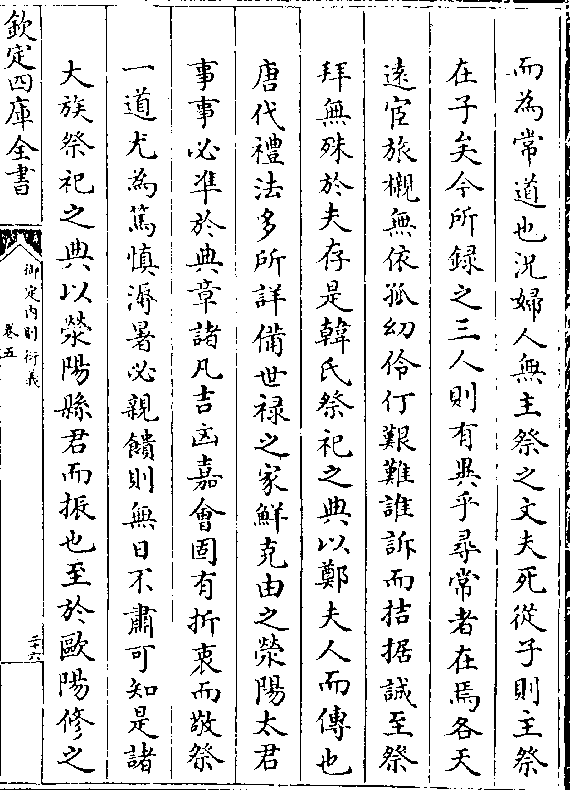 而為常道也況婦人無主祭之文夫死從子則主祭
在子矣今所録之三人則有異乎尋常者在焉各天
遠宦旅櫬無依孤幼伶仃艱難誰訴而拮据誠至祭
拜無殊於夫存是韓氏祭祀之典以鄭夫人而傳也
唐代禮法多所詳備世禄之家鮮克由之滎陽太君
事事必準於典章諸凡吉凶嘉會固有折衷而敬祭
一道尤為篤慎溽暑必親饋則無日不肅可知是諸
大族祭祀之典以滎陽縣君而振也至於歐陽修之
欽定四庫全書
御定内則衍義
卷五
二十六